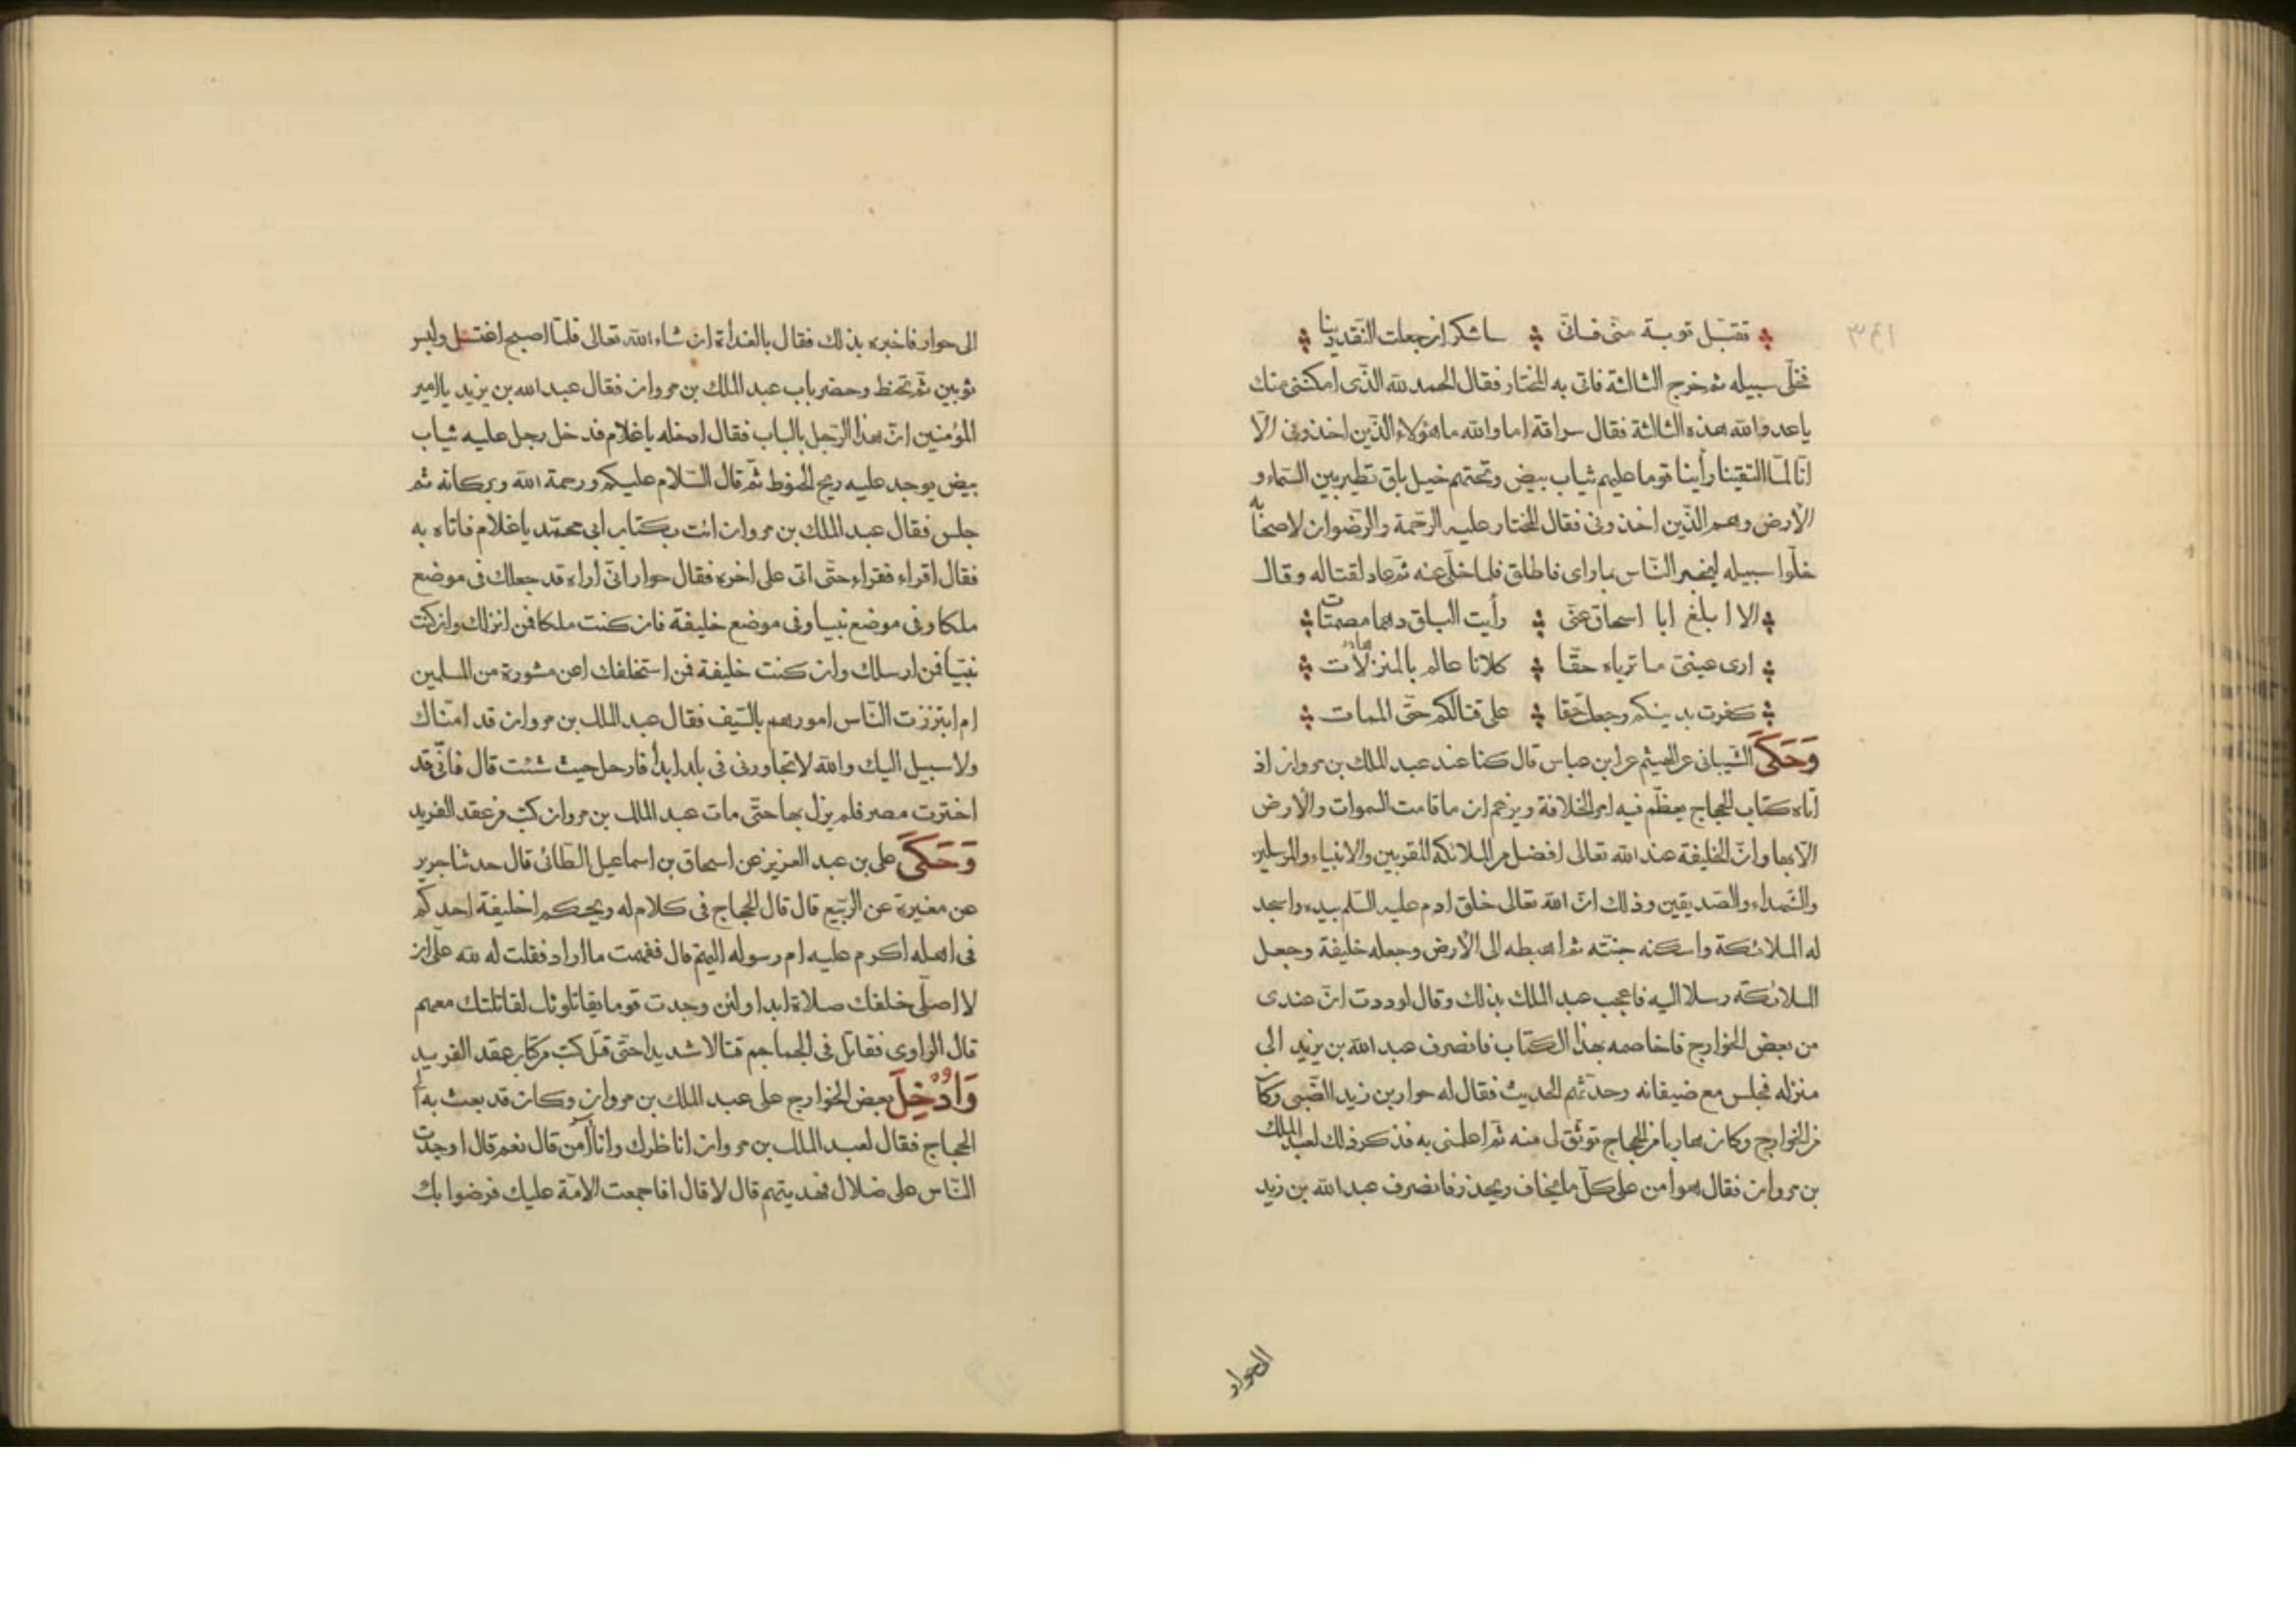 ٣٤١
تقبّل توبة منّى فانّى ساشكر ان جعلت النّقد دينا
فخلّى سبيله ثم خرج الثالثة فاتى به المختار فقال الحمد لله الذّى امكننى منك
ياعدو الله هذه الثالثة فقال سراقة اما والله ماهؤلاء الذّين اخذونى الّا
انّا لمّا التقينا رأينا قوما عليهم ثياب بيض وتحتهم خيل بلق تطير بين السّماء و
الأرض وهم الذّين اخذونى فقال المختار عليه الرّحمة والرّضوان لاصحابه
خلّوا سبيله ليخبر النّاس بماراى فاطلق فلما خلّى عنه ثم عاد لقتاله وقال
الا ابلغ ابا اسحاق عنّى رأيت البلق دهما مصمتات
ارى عينىّ ما ترياه حقّا كلانا عالم بالمنزلات
كفرت بدينكم وجعلت حقا على قتالكم حتّى الممات
وَحَكَى الشّيبانى عن الهيثم عن ابن عباس قال كنا عند عبد الملك بن مروان اذ
أتاه كتاب الحجاج يعظّم فيه امر الخلافة ويزعم ان ماقامت السموات والأرض
الّا بها وانّ الخليفة عند الله تعالى افضل من الملائكة المقربين والانبياء والمرسلين
والشهداء والصّديقين وذلك انّ الله تعالى خلق ادم عليه السّلم بيده واسجد
له الملائكة واسكنه جنّته ثم اهبطه الى الأرض وجعله خليفة وجعل
الملائكة رسلا اليه فاعجب عبد الملك بذلك وقال لوددت انّ عندى
من بعض الخوارج فاخاصمه بهذا الكتاب فانصرف عبد الله بن يزيد الى
منزله فجلس مع ضيفانه وحدّثهم الحديث فقال له حوار بن زيد الضّبى وكان
من الخوارج وكان هاربا من الحجاج توثّق لى منه ثم اعلمنى به فذكر ذلك لعبد الملك
بن مروان فقال هو امن على كلّ مايخاف ويحذر فانصرف عبد الله بن زيد
الى حوار
الى حوار فاخبره بذلك فقال بالغداة ان شاء الله تعالى فلمّا اصبح اغتسل ولبس
ثوبين ثم تحنط وحضر باب عبد الملك بن مروان فقال عبد الله بن يزيد ياامير
المؤمنين انّ هذا الرّجل بالباب فقال ادخله ياغلام فدخل رجل عليه ثياب
بيض يوجد عليه ريح الحنوط ثم قال السّلام عليكم ورحمة الله وبركاته ثم
جلس فقال عبد الملك بن مروان ائت بكتاب ابى محمّد ياغلام فاتاه به
فقال اقراء فقراء حتّى اتى على اخره فقال حوار انّى اراه قد جعلك فى موضع
ملكا وفى موضع نبيا وفى موضع خليفة فان كنت ملكا فمن انزلك وان كنت
نبيّا فمن ارسلك وان كنت خليفة فمن استخلفك اعن مشورة من المسلمين
ام ابتززت النّاس امورهم بالسّيف فقال عبد الملك بن مروان قد امّنّاك
ولا سبيل اليك والله لاتجاورنى فى بلد ابدا فارحل حيث شئت قال فانّى قد
اخترت مصر فلم يزل بها حتّى مات عبد الملك بن مروان كتب من عقد الفريد
وَحَكَى على بن عبد العزيز عن اسحاق بن اسماعيل الطّائى قال حدثنا جرير
عن مغيرة عن الرّبيع قال قال الحجاج فى كلام له ويحكم اخليفة احدكم
فى اهله اكرم عليه ام رسوله اليهم قال ففهمت ما اراد فقلت له لله علىّ ان
لا اصلّى خلفك صلاة ابدا ولئن وجدت قوما يقاتلونك لقاتلتك معهم
قال الرّاوى فقاتل فى الجماجم قتالا شديدا حتّى قتل كتب من كتاب عقد الفريد
وَاُدْخِلَ بعض الخوارج على عبد الملك بن مروان وكان قد بعث به الى
الحجاج فقال لعبد الملك بن مروان اناظرك وانا امن قال نعم قال اوجدت
النّاس على ضلال فهديتهم قال لا قال افاجمعت الامّة عليك فرضوا بك